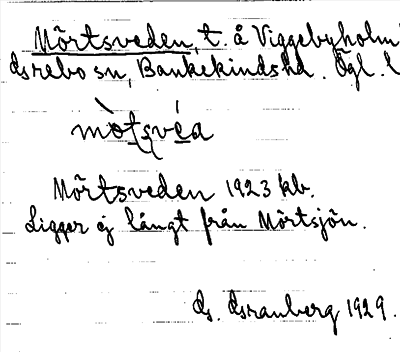 Mörtsveden, t. å Viggebyholm
Åsrebo sn, Bankekinds hd. Ögl. l
mòtsvéa
Mörtsveden 1923 kb.
Ligger ej långt från Mörtsjön.
Cs. Granberg 1929.